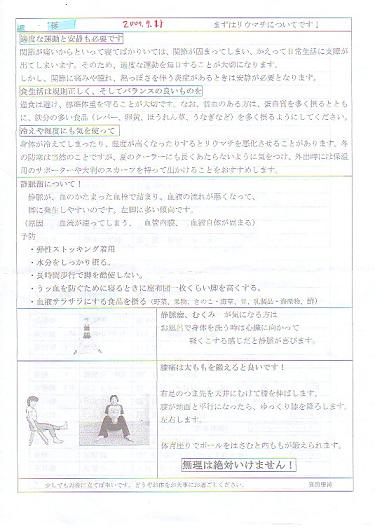 様
2009.9.11
まずはリウマチについてです↓
適度な運動と安静も必要です
関節が痛いからといって寝てばかりいては、関節が固まってしまい、かえって日常生活に支障が
出てしまいます。そのため、適度な運動を毎日することが大切になります。
しかし、関節に痛みや腫れ、熱っぽさを伴う炎症があるときは安静が必要となります。
食生活は規則正しく、そしてバランスの良いものを
過食は避け、標準体重を守ることが大切です。なお、貧血のある方は、蛋白質を多く摂るととも
に、鉄分の多い食品（レバー、卵黄、ほうれん草、うなぎなど）を多く摂るようにしてください。
冷えや湿度にも気を使って
身体が冷えてしまったり、湿度が高くなったりするとリウマチを悪化させることがあります。冬
の防寒は当然のことですが、夏のクーラーにも長くあたらないように気をつけ、外出時には保温
用のサポーターや大判のスカーフを持って出かけることをおすすめします。
静脈瘤について！
静脈が、血のかたまった血栓で詰まり、血液の流れが悪くなって、
脚に発生しやすいのです。左脚に多い傾向です。
（原因 血流が滞ってしまう、 血管内膜、 血液自体が固まる）
予防
・弾性ストッキング着用
・水分をしっかり摂る。
・長時間歩行で脚を酷使しない。
・うっ血を防ぐために寝るときに座布団一枚くらい脚を高くする。
・血液サラサラにする食品を摂る（野菜、果物、きのこ・海草、豆、乳製品・海産物、酢）
静脈瘤、むくみ が気になる方は
お風呂で身体を洗う時は心臓に向かって
軽くこする感じだと静脈が喜びます。
膝痛は太ももを鍛えると良いです！
右足のつま先を天井にむけて膝を伸ばします。
膝が地面と平行になったら、ゆっくり膝を降ろします。
左右します。
体育座りでボールをはさむと内ももが鍛えられます。
無理は絶対いけません！
少しでもお役に立てば幸いです。どうぞお体をお大事にお過ごしください。